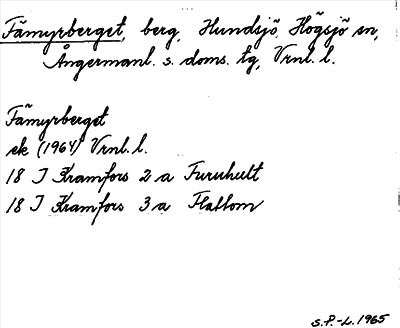 Fämyrberget, berg, Hundsjö, Högsjö sn,
Ångermanl. s. doms. tg, Vrnl. l.
Fämyrberget
ek (1964) Vrnl. l.
18 I Kramfors 2 a Furuhult
18 I Kramfors 3 a Flattom
S.P.-L. 1965